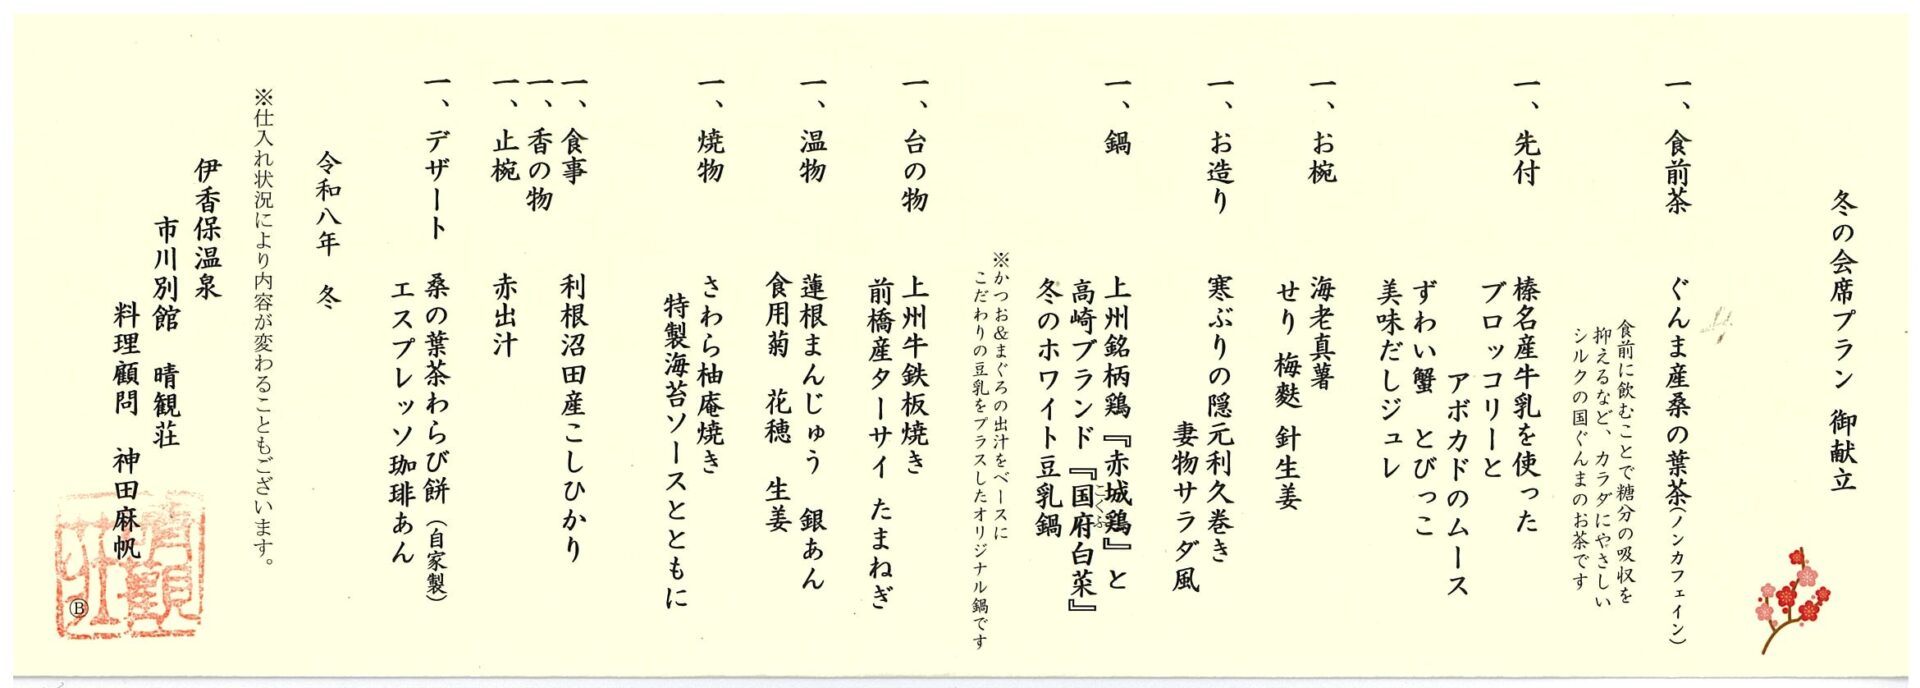 冬の会席プラン 御献立
一、食前茶 ぐんま産桑の葉茶(ノンカフェイン)
食前に飲むことで糖分の吸収を
抑えるなど、カラダにやさしい
シルクの国ぐんまのお茶です
一、先付 榛名産牛乳を使った
ブロッコリーと
アボカドのムース
ずわい蟹 とびっこ
美味だしジュレ
一、お椀 海老真薯
せり 梅麩 針生姜
一、お造り 寒ぶりの隠元利久巻き
妻物サラダ風
一、鍋 上州銘柄鶏『赤城鶏』と
高崎ブランド『国府白菜』
こくふ
冬のホワイト豆乳鍋
※かつお&まぐろの出汁をベースに
こだわりの豆乳をプラスしたオリジナル鍋です
一、台の物 上州牛鉄板焼き
前橋産ターサイ たまねぎ
一、温物 蓮根まんじゅう 銀あん
食用菊 花穂 生姜
一、焼物 さわら柚庵焼き
特製海苔ソースとともに
一、食事 利根沼田産こしひかり
一、香の物
一、止椀 赤出汁
一、デザート 桑の葉茶わらび餅(自家製)
エスプレッソ珈琲あん
令和八年 冬
※仕入れ状況により内容が変わることもございます。
伊香保温泉
市川別館 晴観荘
料理顧問 神田麻帆
晴観荘
Ⓑ